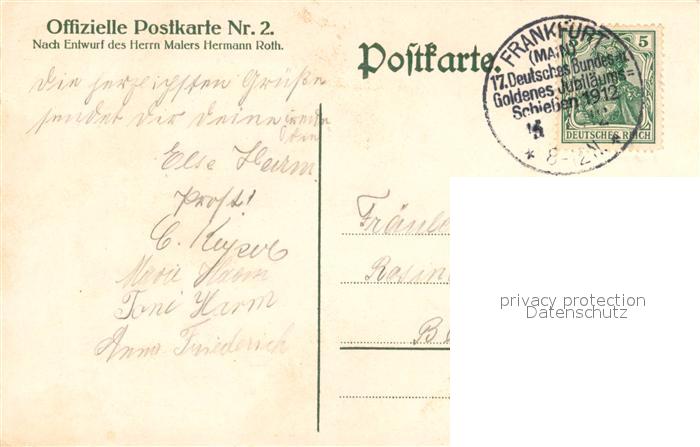 Offizielle Postkarte Nr. 2.
Nach Entwurf des Herrn Malers Hermann Roth.
Postkarte.
FRANKFURT
(MAIN)
17. Deutsches Bundes- u.
Goldenes Jubiläums-
Schießen 1912
* 8-12 N. *
5
DEUTSCHES REICH
Die herzlichsten Grüße
sendet dir deine
Else Harm
Prost!
C. Keyser
Marie Harm
Toni Harm
Anna Friederich
Fräule
Rosin
B
privacy protection
Datenschutz